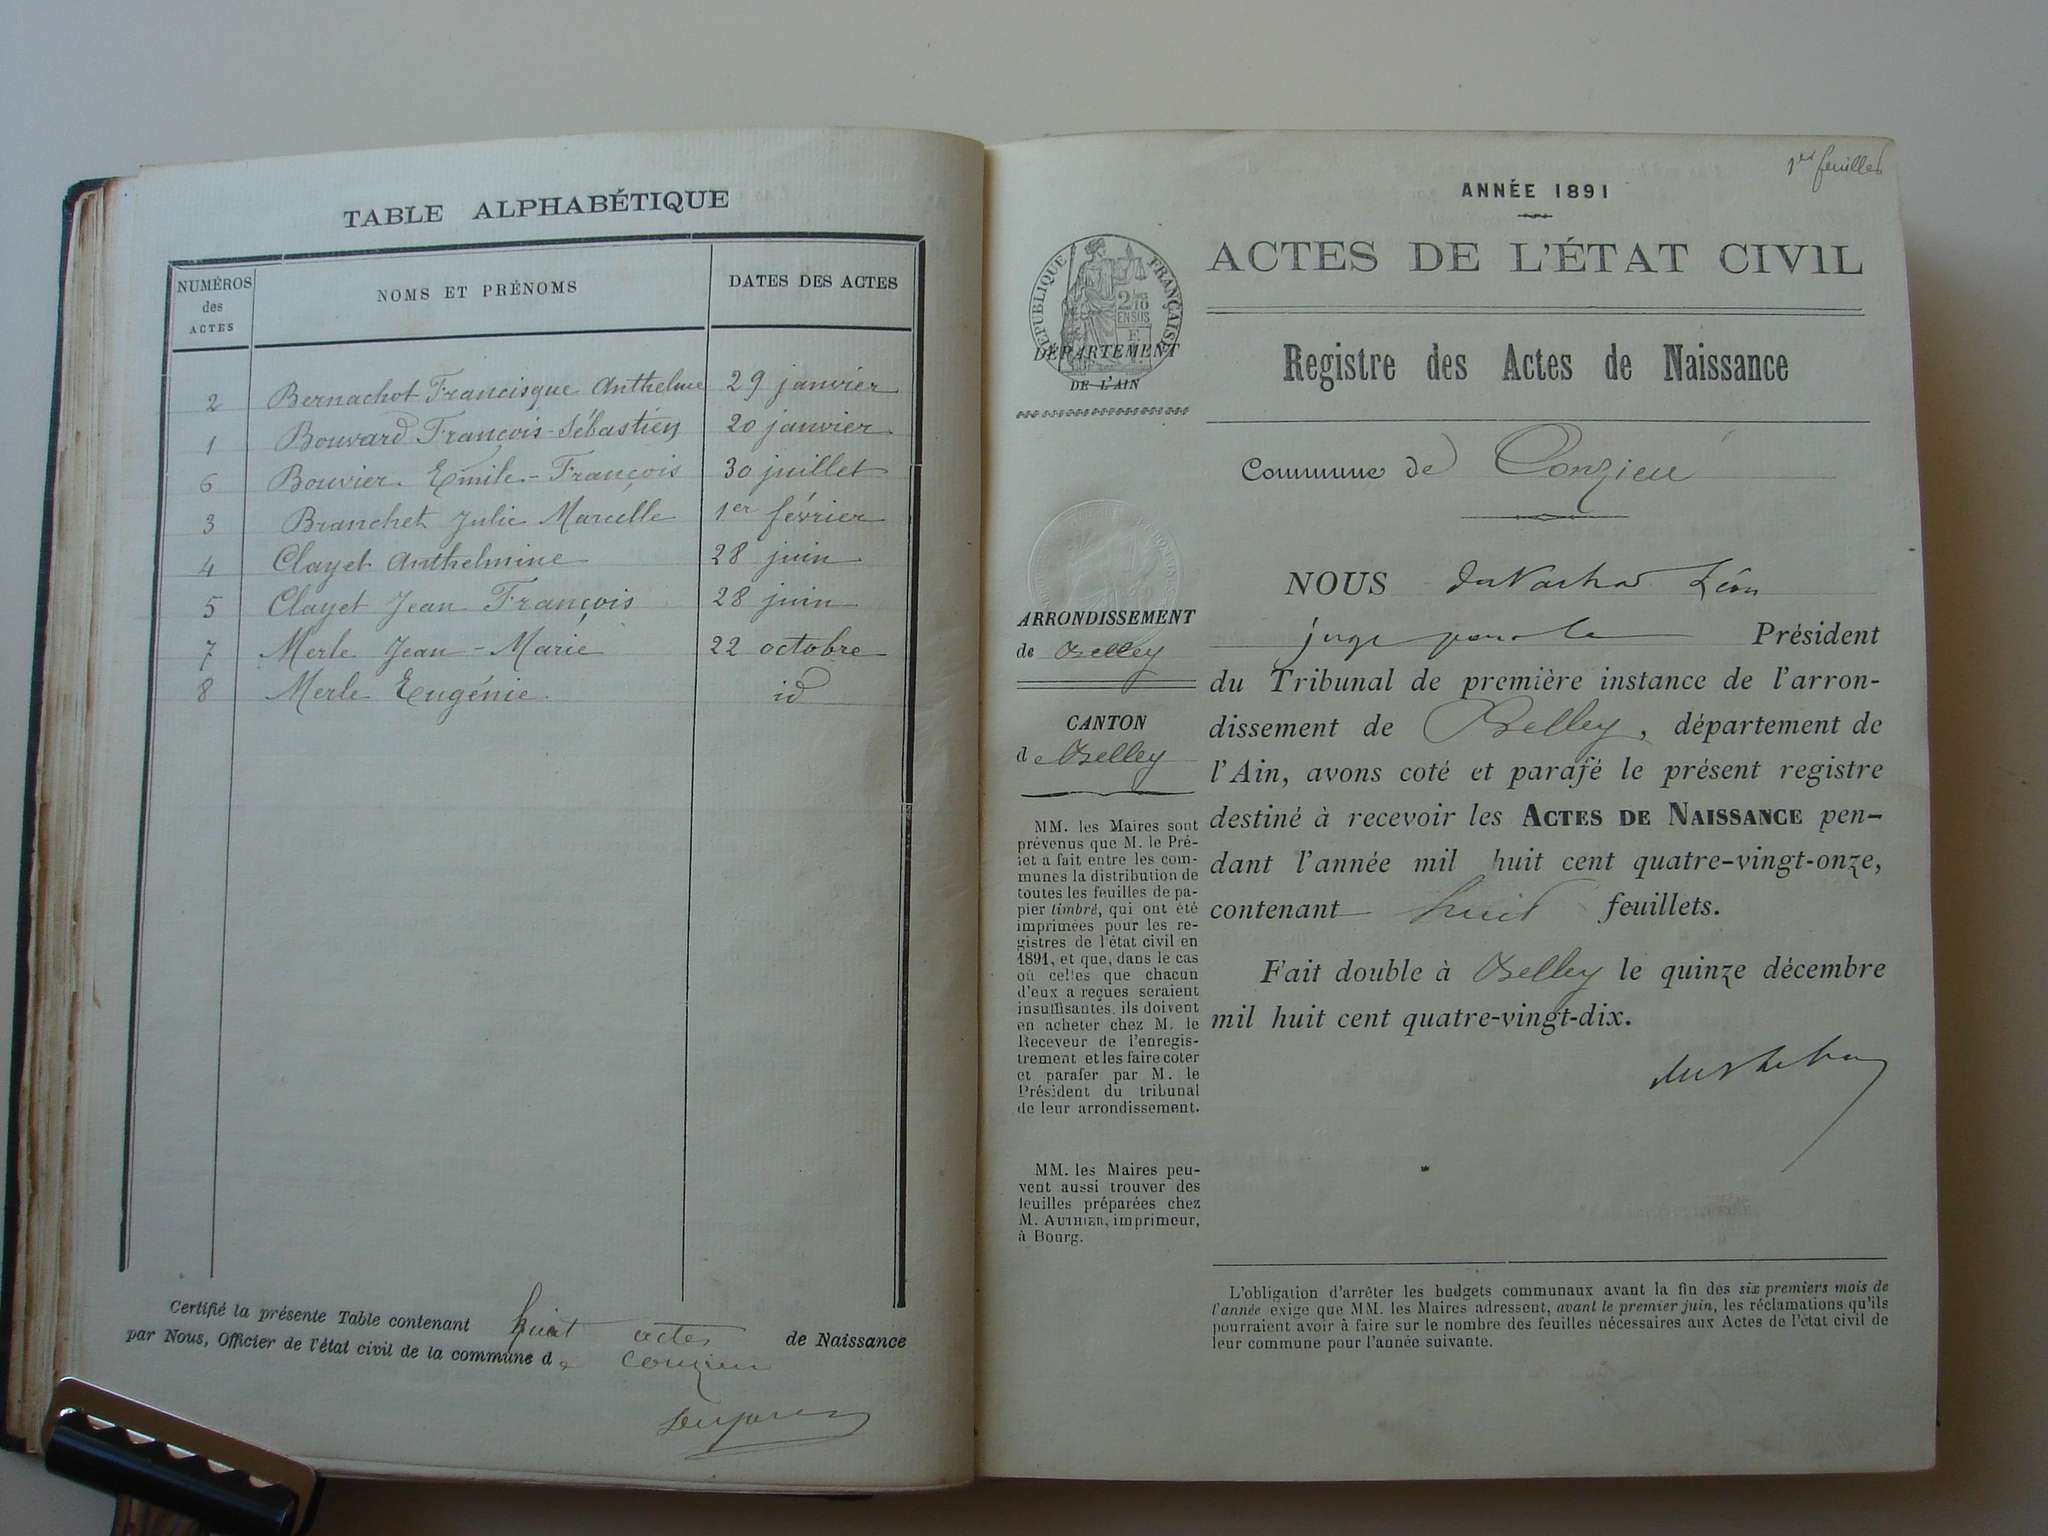 TABLE ALPHABÉTIQUE
NUMÉROS des ACTES
NOMS ET PRÉNOMS
DATES DES ACTES
2 Bernachot Francisque Anthelme 29 janvier
1 Bouvard François-Sébastien 20 janvier
6 Bouvier Emile-François 30 juillet
3 Branchet Julie Marcelle 1er février
4 Clayet Anthelmine 28 juin
5 Clayet Jean François 28 juin
7 Merle Jean-Marie 22 octobre
8 Merle Eugénie id
Certifié la présente Table contenant huit actes de Naissance
par Nous, Officier de l'état civil de la commune de Conzieu
ANNÉE 1891
feuilles
ACTES DE L'ÉTAT CIVIL
RÉPUBLIQUE FRANÇAISE
2/10
EN SUS
DÉPARTEMENT
DE L'AIN
Registre des Actes de Naissance
Commune de Conzieu
ARRONDISSEMENT
de Belley
CANTON
de Belley
MM. les Maires sont
prévenus que M. le Pré-
fet a fait entre les com-
munes la distribution de
toutes les feuilles de pa-
pier timbré, qui ont été
imprimées pour les re-
gistres de l'état civil en
1891, et que, dans le cas
où celles que chacun
d'eux a reçues seraient
insuffisantes, ils doivent
en acheter chez M. le
Receveur de l'enregis-
trement et les faire coter
et parafer par M. le
Président du tribunal
de leur arrondissement.
MM. les Maires peu-
vent aussi trouver des
feuilles préparées chez
M. AUTHIER, imprimeur,
à Bourg.
NOUS Léon
juge Président
du Tribunal de première instance de l'arron-
dissement de Belley, département de
l'Ain, avons coté et parafé le présent registre
destiné à recevoir les ACTES DE NAISSANCE pen-
dant l'année mil huit cent quatre-vingt-onze,
contenant huit feuillets.
Fait double à Belley le quinze décembre
mil huit cent quatre-vingt-dix.
L'obligation d'arrêter les budgets communaux avant la fin des six premiers mois de
l'année exige que MM. les Maires adressent, avant le premier juin, les réclamations qu'ils
pourraient avoir à faire sur le nombre des feuilles nécessaires aux Actes de l'état civil de
leur commune pour l'année suivante.